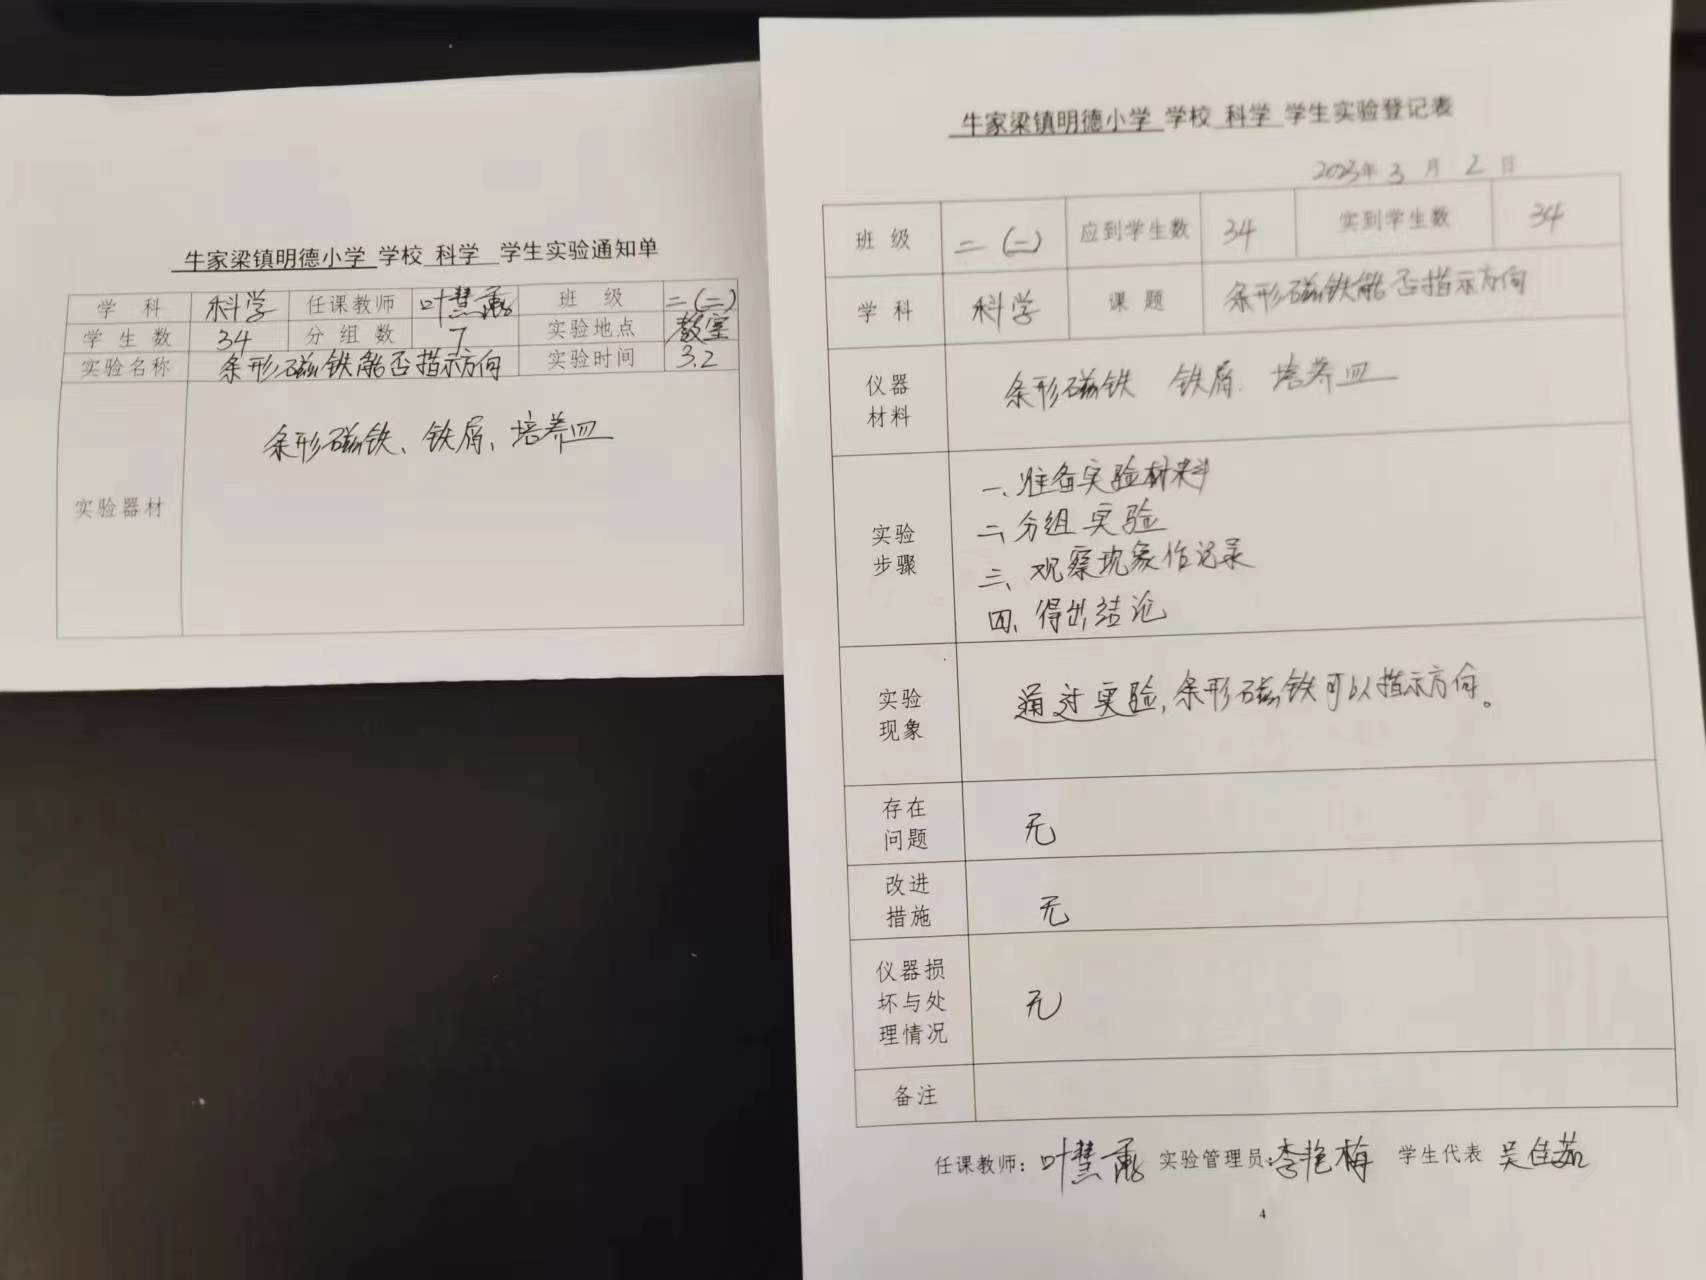 牛家梁镇明德小学 学校 科学 学生实验通知单
学 科 科学 任课教师 叶慧 班 级 二(二)
学 生 数 34 分 组 数 7 实验地点 教室
实验名称 条形磁铁能否指示方向 实验时间 3.2
条形磁铁、铁屑、培养皿
实验器材
牛家梁镇明德小学 学校 科学 学生实验登记表
2023年 3 月 2 日
班 级 二(二) 应到学生数 34 实到学生数 34
学 科 科学 课 题 条形磁铁能否指示方向
仪器
材料
条形磁铁 铁屑. 培养皿
实验
步骤
一、准备实验材料
二、分组实验
三、观察现象作记录
四、得出结论
实验
现象
通过实验,条形磁铁可以指示方向。
存在
问题
无
改进
措施
无
仪器损
坏与处
理情况
无
备注
任课教师: 叶慧 实验管理员: 李艳梅 学生代表 吴佳茹
4